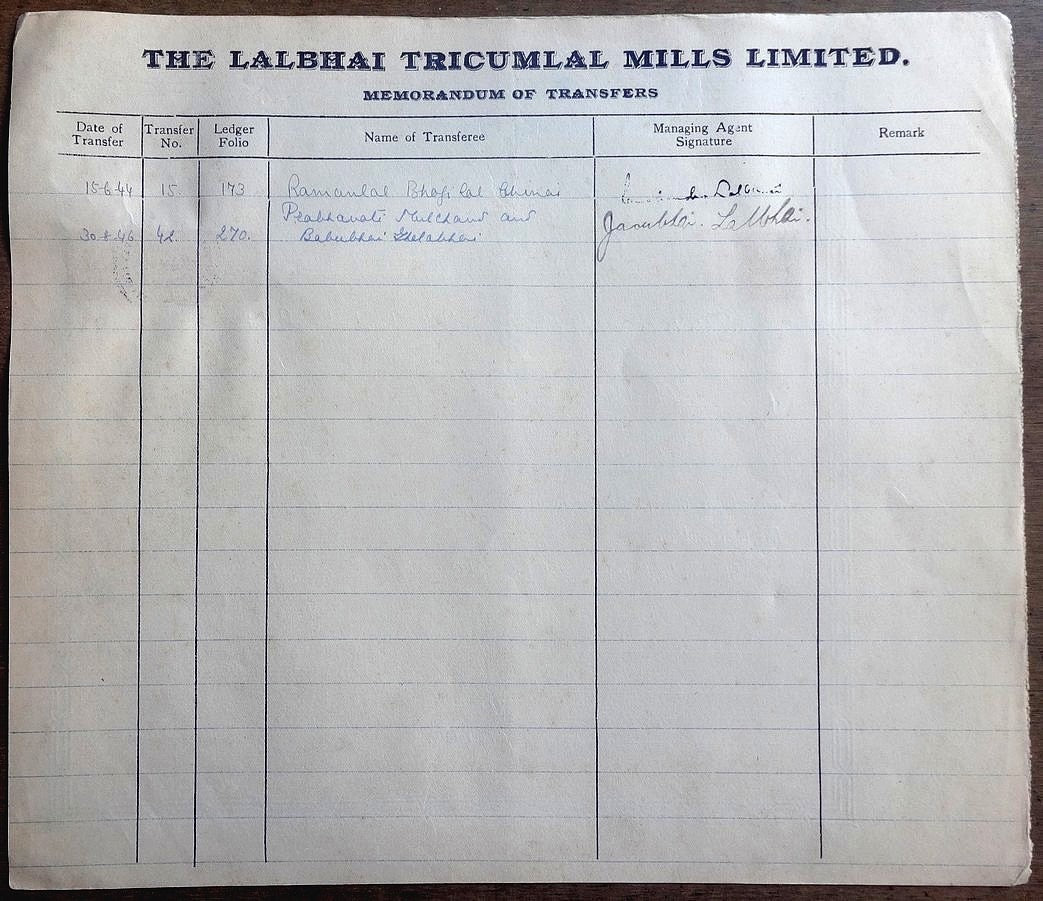 THE LALBHAI TRICUMLAL MILLS LIMITED.
MEMORANDUM OF TRANSFERS
Date of Transfer No. Ledger Folio Name of Transferee Managing Agent Signature Remark
Transfer
15-6-44 15. 173 Ramanlal Bhogilal Chinai
Prabhavati Mulchand and
30-8-46 42. 270. Babubhai Ghelabhai Lalbhai.